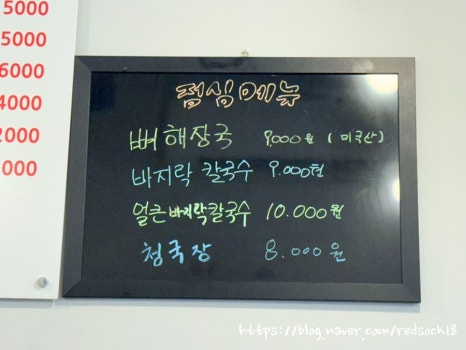 5000
5000
6000
4000
2000
000
점심메뉴
뼈 해장국 9,000원 (미국산)
바지락 칼국수 9.000원
얼큰 바지락칼국수 10.000원
청국장 8.000원
https://blog.naver.com/redsock18